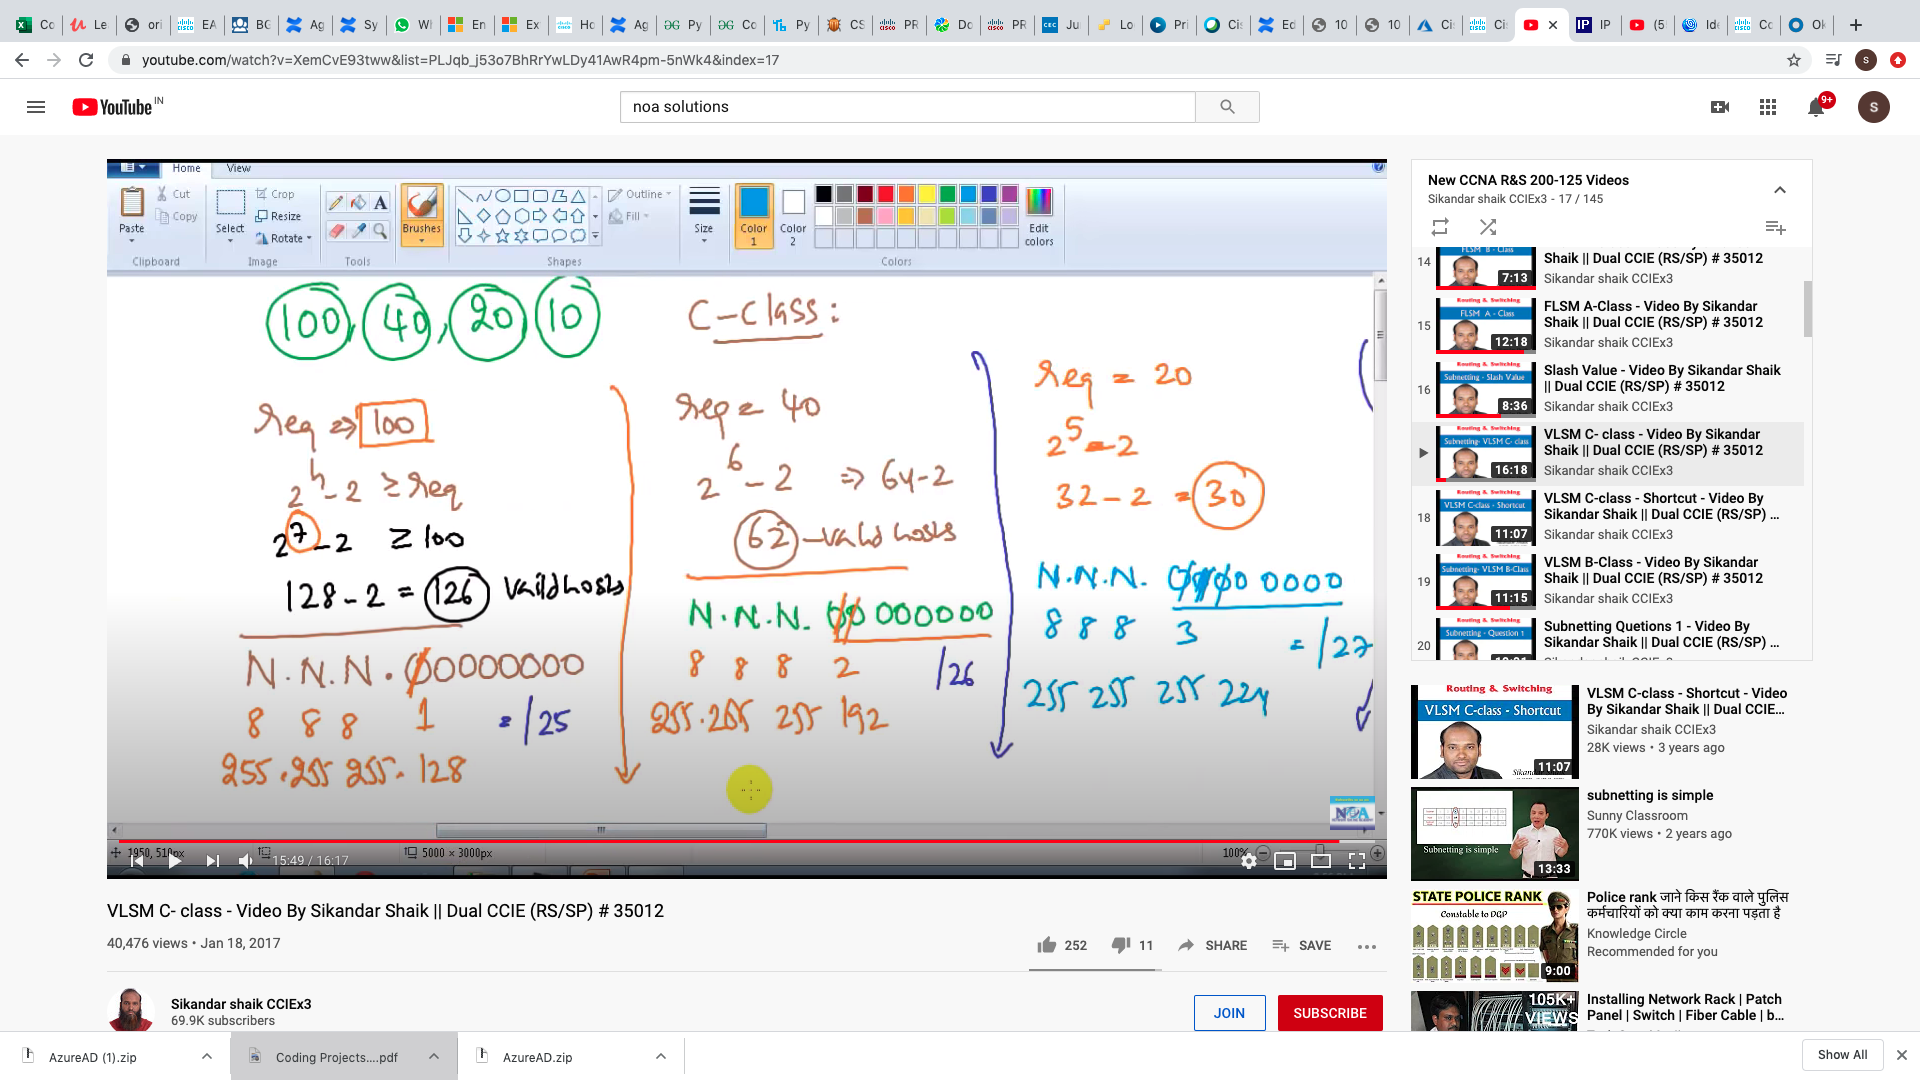 Co Le ori EA BG Ag Sy Wh En Ex Ho Ag Py Co Py CS PR Do PR Ju Lo Pri Cis Ed 10 10 Cis Cis IP (5 Ide Co Ok
youtube.com/watch?v=XemCvE93tww&list=PLJqb_j53o7BhRrYwLDy41AwR4pm-5nWk4&index=17
YouTube IN
noa solutions
9+
S
Home View
Paste Cut Copy
Clipboard
Select Crop Resize Rotate
Image
Tools
Brushes
Outline Fill
Shapes
Size
Color 1 Color 2
Edit colors
Colors
100, 40, 20 10
C-Class:
req => 100
2^h - 2 ≥ req
2^7 - 2 ≥ 100
128 - 2 = 126 Valid hosts
N.N.N.00000000
8 8 8 1 = /25
255.255 255.128
req = 40
2^6 - 2 => 64-2
62 - Valid hosts
N.N.N. 00 000000
8 8 8 2 /26
255.255 255 192
req = 20
2^5 - 2
32 - 2 = 30
N.N.N. 000 00000
8 8 8 3 = /27
255 255 255 224
NOA
1950, 510px
5000 × 3000px
100%
15:49 / 16:17
VLSM C- class - Video By Sikandar Shaik || Dual CCIE (RS/SP) # 35012
40,476 views • Jan 18, 2017
252 11 SHARE SAVE
Sikandar shaik CCIEx3
69.9K subscribers
JOIN SUBSCRIBE
New CCNA R&S 200-125 Videos
Sikandar shaik CCIEx3 - 17 / 145
14
FLSM B - Class
7:13
Shaik || Dual CCIE (RS/SP) # 35012
Sikandar shaik CCIEx3
15
Routing & Switching
FLSM A - Class
12:18
FLSM A-Class - Video By Sikandar
Shaik || Dual CCIE (RS/SP) # 35012
Sikandar shaik CCIEx3
16
Routing & Switching
Subnetting - Slash Value
8:36
Slash Value - Video By Sikandar Shaik
|| Dual CCIE (RS/SP) # 35012
Sikandar shaik CCIEx3
Routing & Switching
Subnetting- VLSM C- class
16:18
VLSM C- class - Video By Sikandar
Shaik || Dual CCIE (RS/SP) # 35012
Sikandar shaik CCIEx3
18
Routing & Switching
VLSM C-class - Shortcut
11:07
VLSM C-class - Shortcut - Video By
Sikandar Shaik || Dual CCIE (RS/SP) ...
Sikandar shaik CCIEx3
19
Routing & Switching
Subnetting- VLSM B-Class
11:15
VLSM B-Class - Video By Sikandar
Shaik || Dual CCIE (RS/SP) # 35012
Sikandar shaik CCIEx3
20
Routing & Switching
Subnetting - Question 1
Subnetting Quetions 1 - Video By
Sikandar Shaik || Dual CCIE (RS/SP) ...
Routing & Switching
VLSM C-class - Shortcut
11:07
VLSM C-class - Shortcut - Video
By Sikandar Shaik || Dual CCIE...
Sikandar shaik CCIEx3
28K views • 3 years ago
Subnetting is simple
13:33
subnetting is simple
Sunny Classroom
770K views • 2 years ago
STATE POLICE RANK
Constable to DGP
9:00
Police rank जाने किस रैंक वाले पुलिस
कर्मचारियों को क्या काम करना पड़ता है
Knowledge Circle
Recommended for you
105K+
VIEWS
Installing Network Rack | Patch
Panel | Switch | Fiber Cable | b...
AzureAD (1).zip
Coding Projects....pdf
AzureAD.zip
Show All